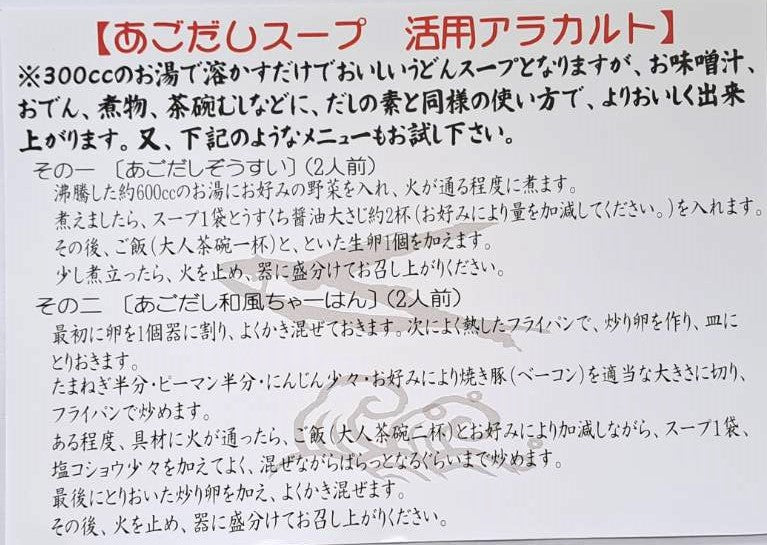 【あごだしスープ 活用アラカルト】
※300ccのお湯で溶かすだけでおいしいうどんスープとなりますが、お味噌汁、
おでん、煮物、茶碗むしなどに、だしの素と同様の使い方で、よりおいしく出来
上がります。又、下記のようなメニューもお試し下さい。
その一 〔あごだしぞうすい〕(2人前)
沸騰した約600ccのお湯にお好みの野菜を入れ、火が通る程度に煮ます。
煮えましたら、スープ1袋とうすくち醤油大さじ約2杯(お好みにより量を加減してください。)を入れます。
その後、ご飯(大人茶碗一杯)と、といた生卵1個を加えます。
少し煮立ったら、火を止め、器に盛分けてお召し上がりください。
その二 〔あごだし和風ちゃーはん〕(2人前)
最初に卵を1個器に割り、よくかき混ぜておきます。次によく熱したフライパンで、炒り卵を作り、皿に
とりおきます。
たまねぎ半分・ピーマン半分・にんじん少々・お好みにより焼き豚(ベーコン)を適当な大きさに切り、
フライパンで炒めます。
ある程度、具材に火が通ったら、ご飯(大人茶碗二杯)とお好みにより加減しながら、スープ1袋、
塩コショウ少々を加えてよく、混ぜながらぱらっとなるぐらいまで炒めます。
最後にとりおいた炒り卵を加え、よくかき混ぜます。
その後、火を止め、器に盛分けてお召し上がりください。